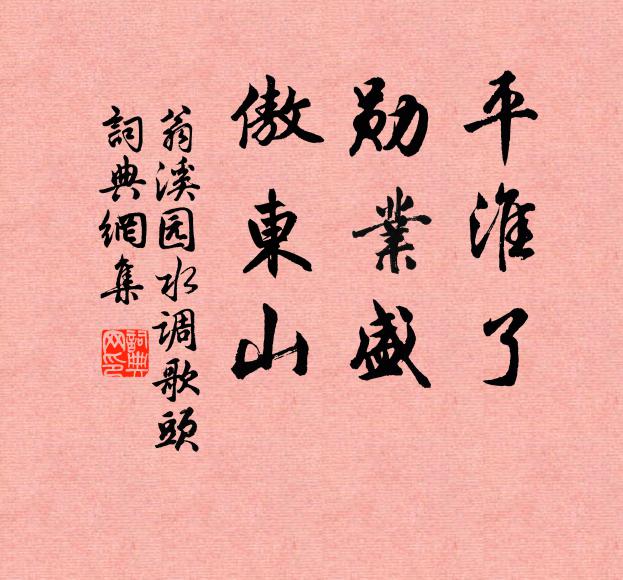 平淮了
勋業盛
傲東山
翁溪园水调歌頭
詞典網集
詞典網印